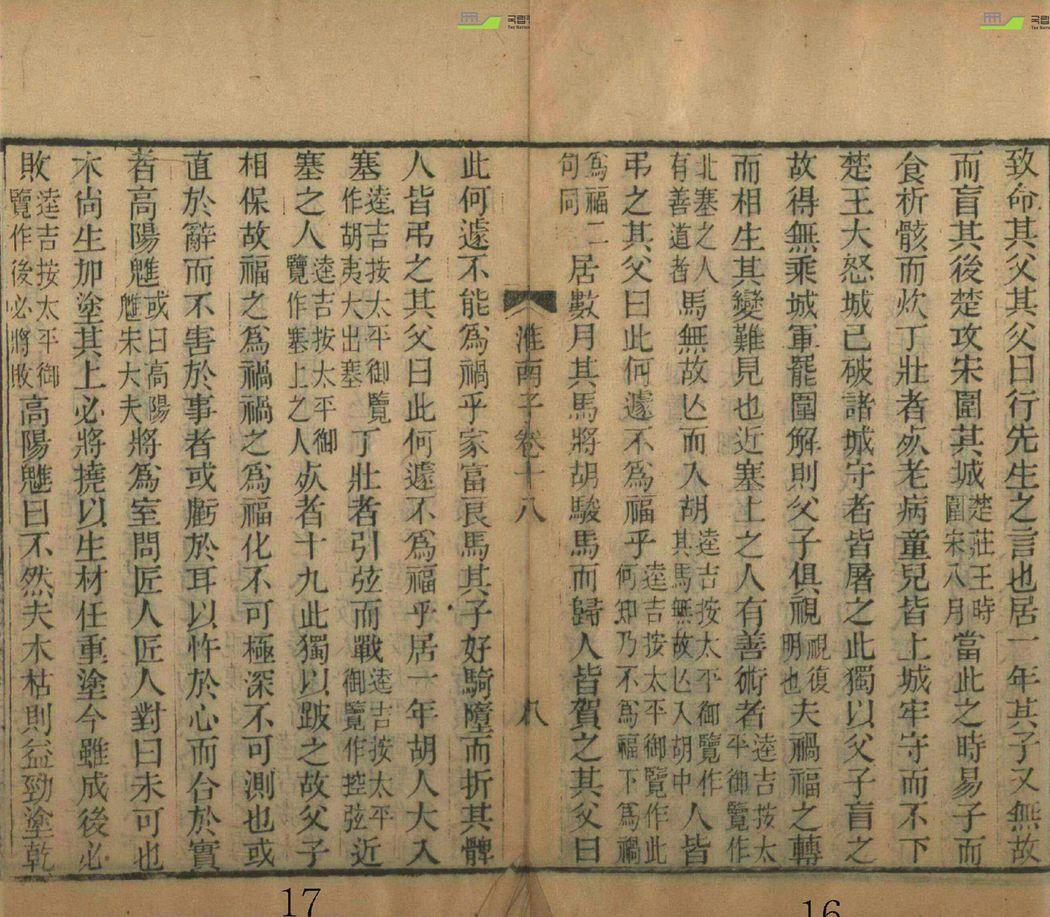 致命其父其父曰行先生之言也居一年其子又無故
而盲其後楚攻宋圍其城楚莊王時圍宋八月當此之時易子而
食析骸而炊丁壯者死老病童兒皆上城牢守而不下
楚王大怒城已破諸城守者皆屠之此獨以父子盲之
故得無乘城軍罷圍解則父子俱視視復明也夫禍福之轉
而相生其變難見也近塞上之人有善術者逵吉按太平御覽作
北塞之人有善道者馬無故亡而入胡逵吉按太平御覽作其馬無故亡入胡中人皆
弔之其父曰此何遽不爲福乎逵吉按太平御覽作此何知乃不爲福下爲禍
爲福二句同居數月其馬將胡駿馬而歸人皆賀之其父曰
淮南子卷十八 八
此何遽不能爲禍乎家富良馬其子好騎墮而折其髀
人皆弔之其父曰此何遽不爲福乎居一年胡人大入
塞逵吉按太平御覽作胡夷大出塞丁壯者引弦而戰逵吉按太平御覽作控弦近
塞之人逵吉按太平御覽作塞上之人死者十九此獨以跛之故父子
相保故福之爲禍禍之爲福化不可極深不可測也或
直於辭而不害於事者或虧於耳以忤於心而合於實
者高陽魋或曰高陽魋宋大夫將爲室問匠人匠人對曰未可也
木尚生加塗其上必將撓以生材任重塗今雖成後必
敗逵吉按太平御覽作後必將敗高陽魋曰不然夫木枯則益勁塗乾
17
16